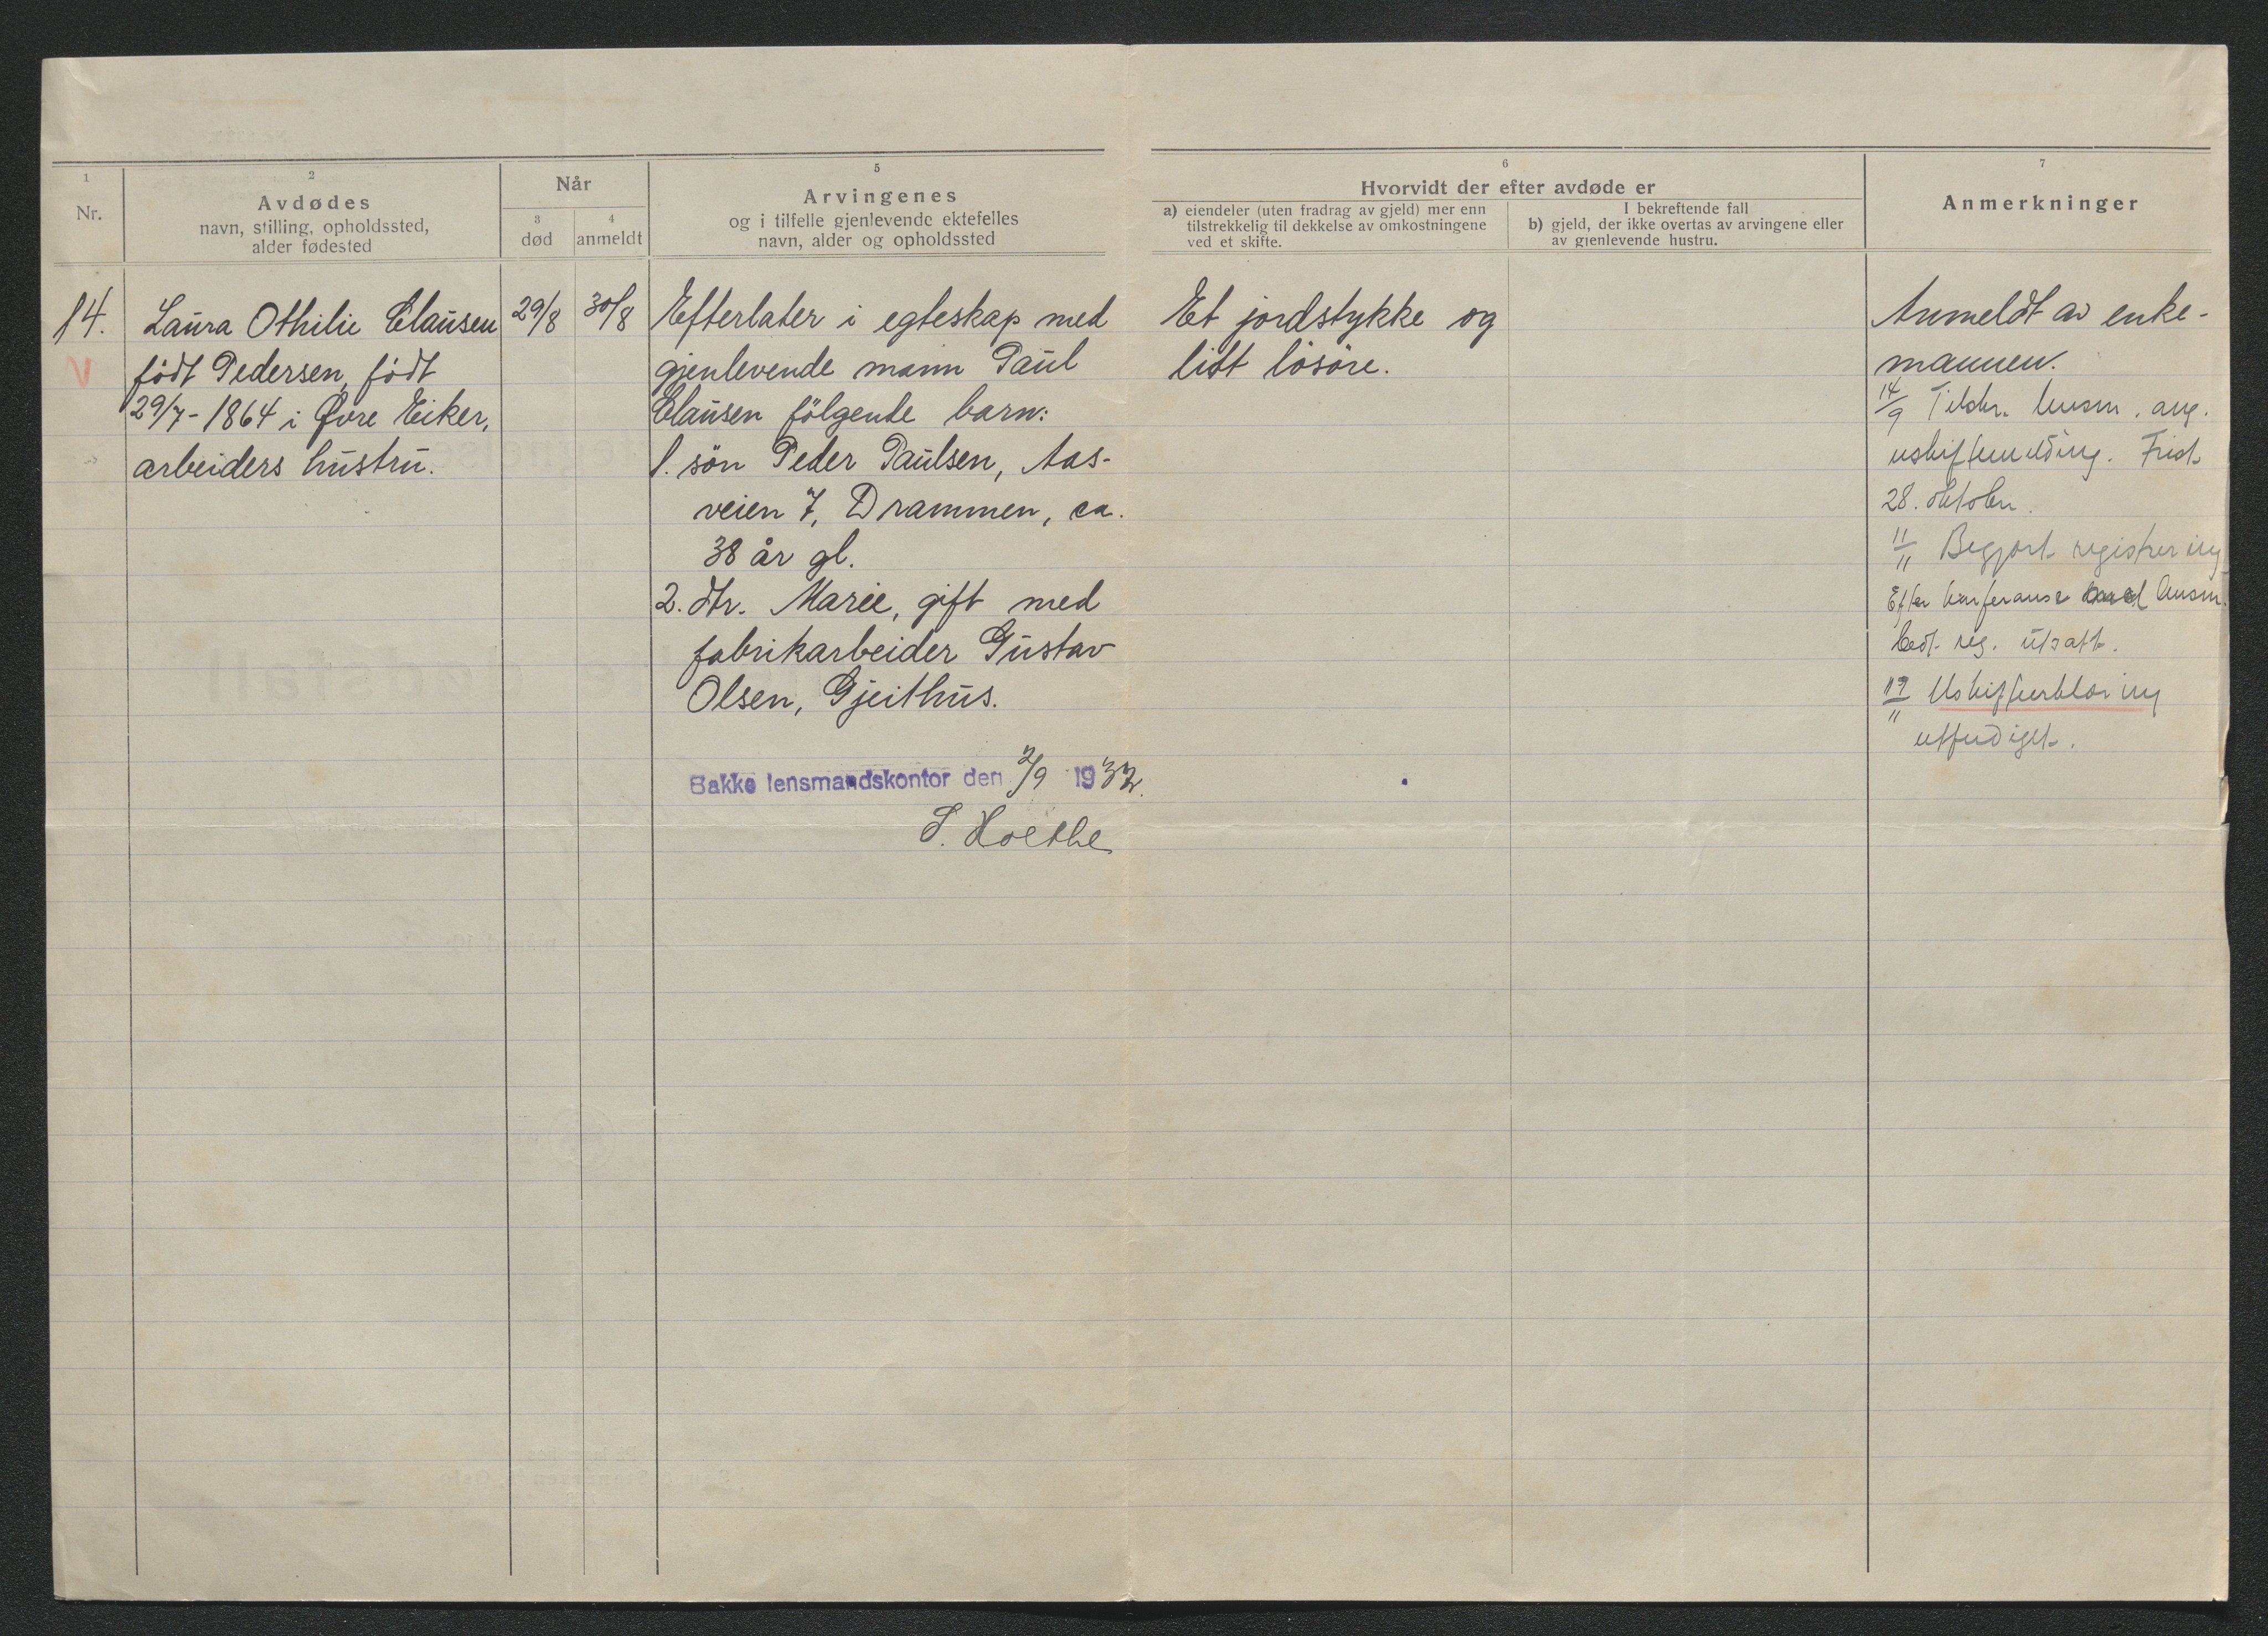 1
Nr.
2
Avdødes
navn, stilling, opholdssted,
alder fødested
Når
3
død
4
anmeldt
5
Arvingenes
og i tilfelle gjenlevende ektefelles
navn, alder og opholdssted
6
Hvorvidt der efter avdøde er
a) eiendeler (uten fradrag av gjeld) mer enn
tilstrekkelig til dekkelse av omkostningene
ved et skifte.
I bekreftende fall
b) gjeld, der ikke overtas av arvingene eller
av gjenlevende hustru.
7
Anmerkninger
14.
V
Laura Othilie Clausen
født Pedersen, født
29/7-1864 i Øvre Eiker,
arbeiders hustru.
29/8
30/8
Efterlater i egteskap med
gjenlevende mann Paul
Clausen følgende barn:
1. søn Peder Paulsen, Aas-
veien 7, Drammen, ca.
38 år gl.
2. dtr. Marie, gift med
fabrikarbeider Gustav
Olsen, Gjeithus.
Bakke lensmandskontor den 2/9 1932.
Et jordstykke og
litt løsøre.
Anmeldt av enke-
mannen.
14/9 Tilskr. lensm. ang.
uskiftemelding. Frist
28. oktober.
11/11 Begjært registrering
Efter konferanse med lensm.
reg. utsatt.
19/11 Uskifteerklæring
utferdiget.